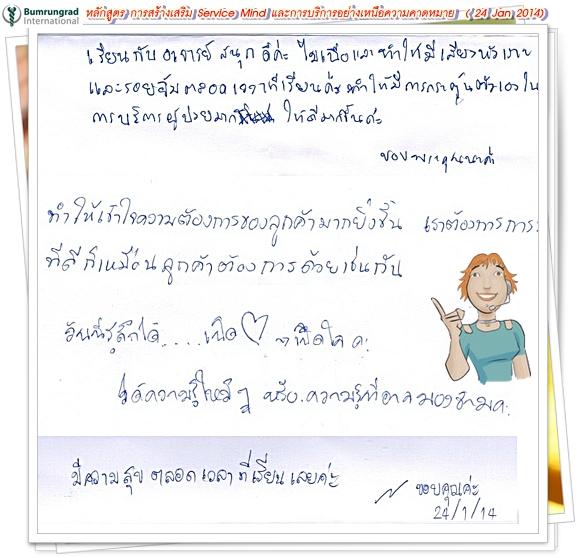 Bumrungrad
International
หลักสูตร การสร้างเสริม Service Mind และการบริการอย่างเหนือความคาดหมาย ( 24 Jan 2014)
เรียนกับ อาจารย์ สนุก ดีค่ะ ไม่เบื่อและ ทำให้มีเสียงหัวเราะ
และรอยยิ้มตลอดเวลาที่เรียนค่ะ ทำให้มีการกระตุ้นตัวเองใน
การบริการผู้ป่วยมาก ให้ดีมากขึ้นค่ะ
ขอบพระคุณมากค่ะ
ทำให้เข้าใจความต้องการของลูกค้ามากยิ่งขึ้น เราต้องการการ
ที่ดีก็เหมือนลูกค้าต้องการด้วยเช่นกัน
วันนี้รู้สึกได้.....เปิด ♡ เปิดใจ ค่ะ
ได้ความรู้ใหม่ๆ หรือความรู้ที่อาจมองข้ามค่ะ
มีความสุข ตลอด เวลา ที่เรียน เลยค่ะ
ขอบคุณค่ะ
24/1/14